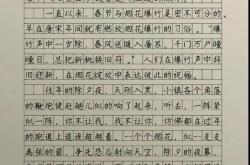 一直以来，春节与烟花爆竹是密不可分的。
早在唐宋年间就有燃放烟花爆竹的习俗。“爆
竹声中一岁除，春风送暖入屠苏。千门万户曈
曈日，总把新桃换旧符。”人们在爆竹声中辞
旧迎新，在烟花绽放中表达彼此的祝福。
往年的除夕夜，天刚黑，小镇各个角落
的鞭炮就赶趟儿似的响了起来，听去，一阵紧
似一阵，你不让我，我不让你，仿佛都在过年
的跑道上追逐超越着。一个个烟花，似一支支
离弦的箭，争先恐后射向天空，除夕的夜，